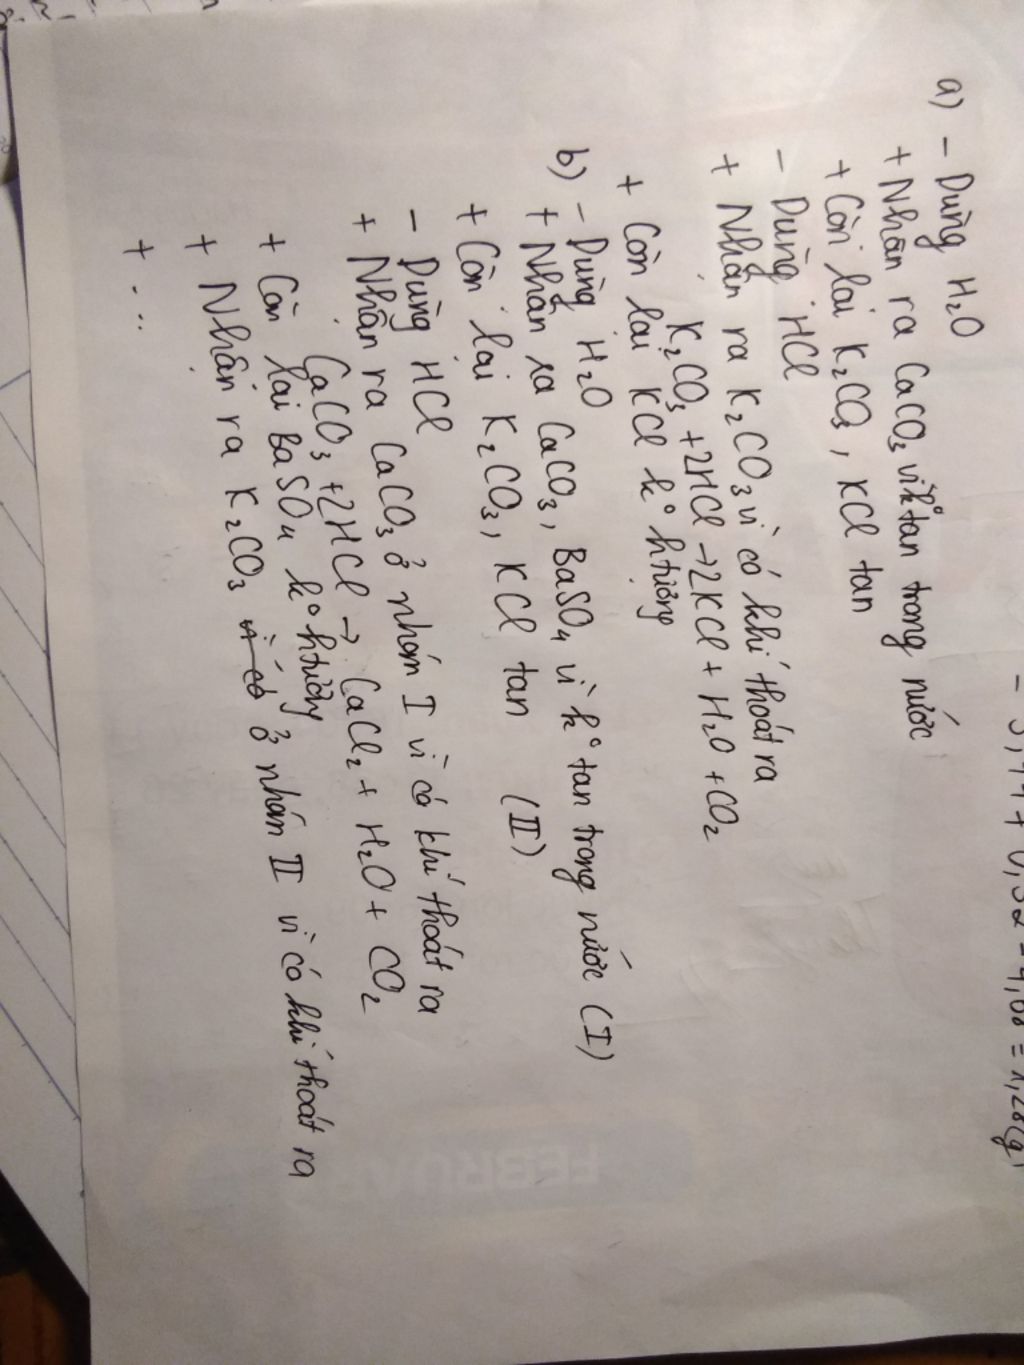 a) - Dùng H₂O
+ Nhận ra CaCO₃ vì k° tan trong nước
+ Còn lại K₂CO₃, KCl tan
- Dùng HCl
+ Nhận ra K₂CO₃ vì có khí thoát ra
K₂CO₃ + 2HCl → 2KCl + H₂O + CO₂
+ Còn lại KCl k° htượng
b) - Dùng H₂O
+ Nhận ra CaCO₃, BaSO₄ vì k° tan trong nước (I)
+ Còn lại K₂CO₃, KCl tan (II)
- Dùng HCl
+ Nhận ra CaCO₃ ở nhóm I vì có khí thoát ra
CaCO₃ + 2HCl → CaCl₂ + H₂O + CO₂
+ Còn lại BaSO₄ k° htượng
+ Nhận ra K₂CO₃ vì có ở nhóm II vì có khí thoát ra
+ ...
FEBRUA